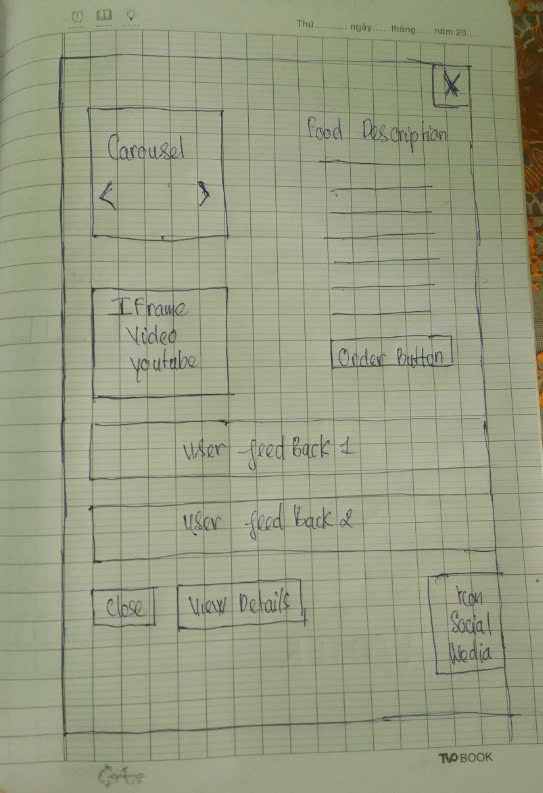 Thứ............ ngày...... tháng...... năm 20....
X
Carousel
< >
Food Description
IFrame
Video
youtube
Order Button
User feedBack 1
User feed Back 2
Close
View Details
Icon
Social
Media
TVO BOOK